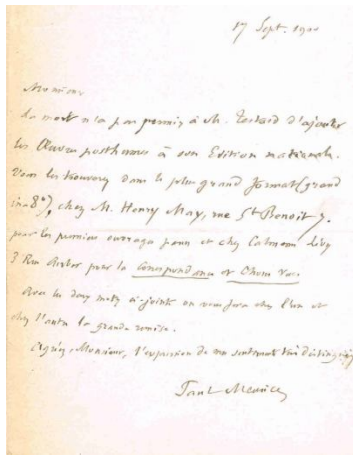 17 Sept. 1900
Monsieur
La mort n'a pas permis à M. Testard d'ajouter
les Œuvres posthumes à son Edition nationale.
Vous les trouverez dans le plus grand format (grand
in-8°), chez M. Henry May, rue St Benoit 7.
pour les premiers ouvrages parus et chez Calmann Lévy
3 Rue Auber pour la Correspondance et Choses vues.
Avec les deux mots ci-joints on vous fera chez l'un et
chez l'autre la grande remise.
Agréez, Monsieur, l'expression de mes sentiments très distingués
Paul Meurice